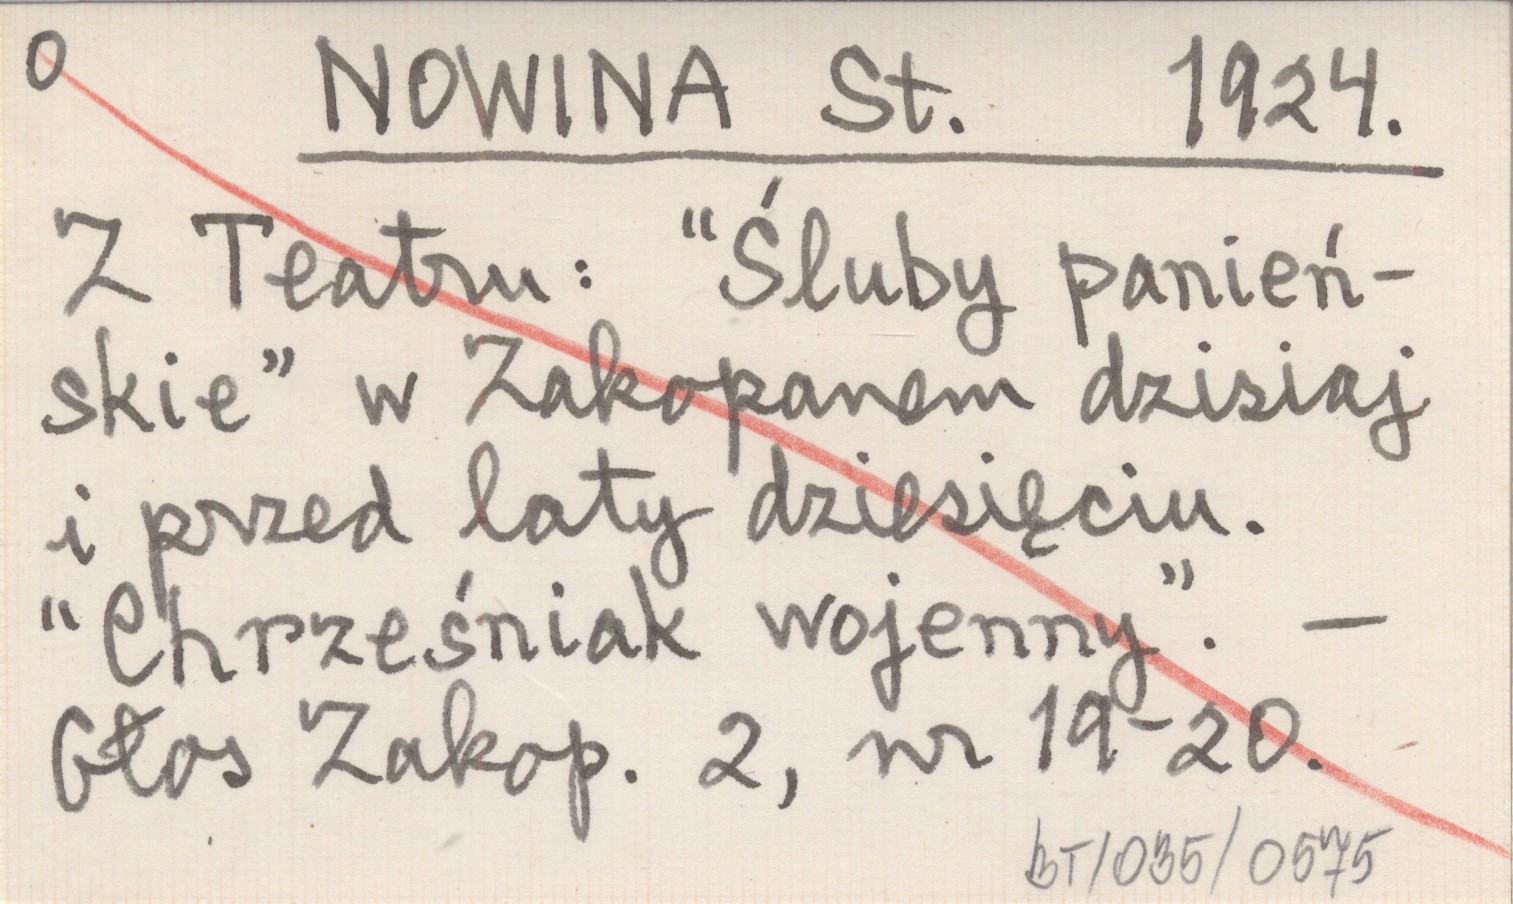 0 NOWINA St. 1924.
Z Teatru: "Śluby panień-
skie" w Zakopanem dzisiaj
i przed laty dziesięciu.
"Chrześniak wojenny". —
Głos Zakop. 2, nr 19-20.
BT/035/0575